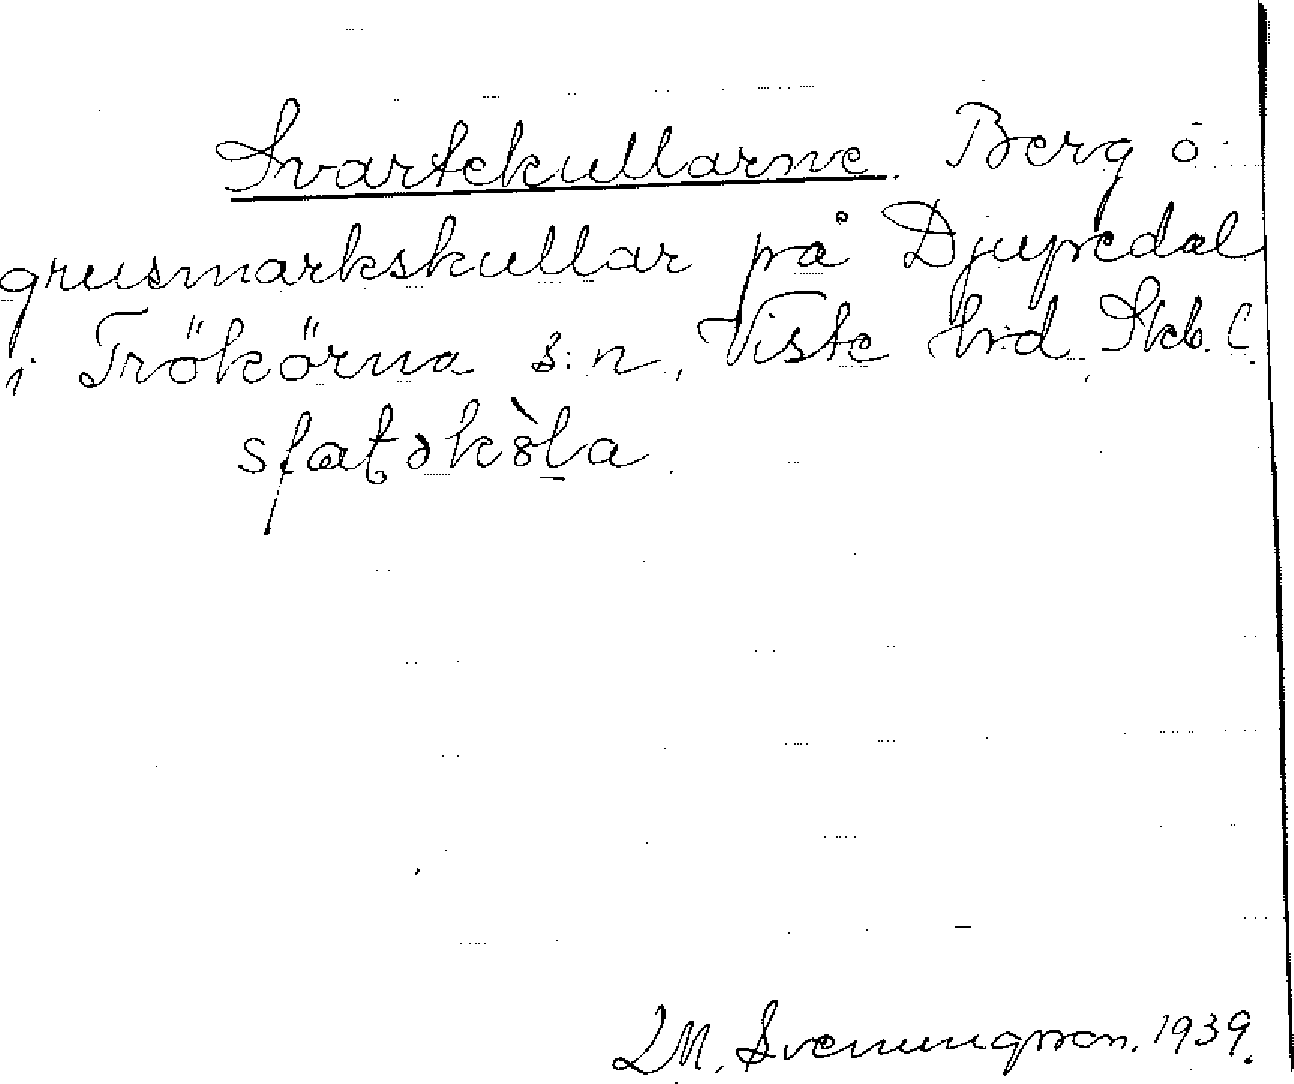 Svartekullarne. Berg o.
grusmarkskullar på Djupedal
i Trökörna s:n, Viste hrd, Skb. l.
sfatəkòla.
L M. Svenungsson. 1939.